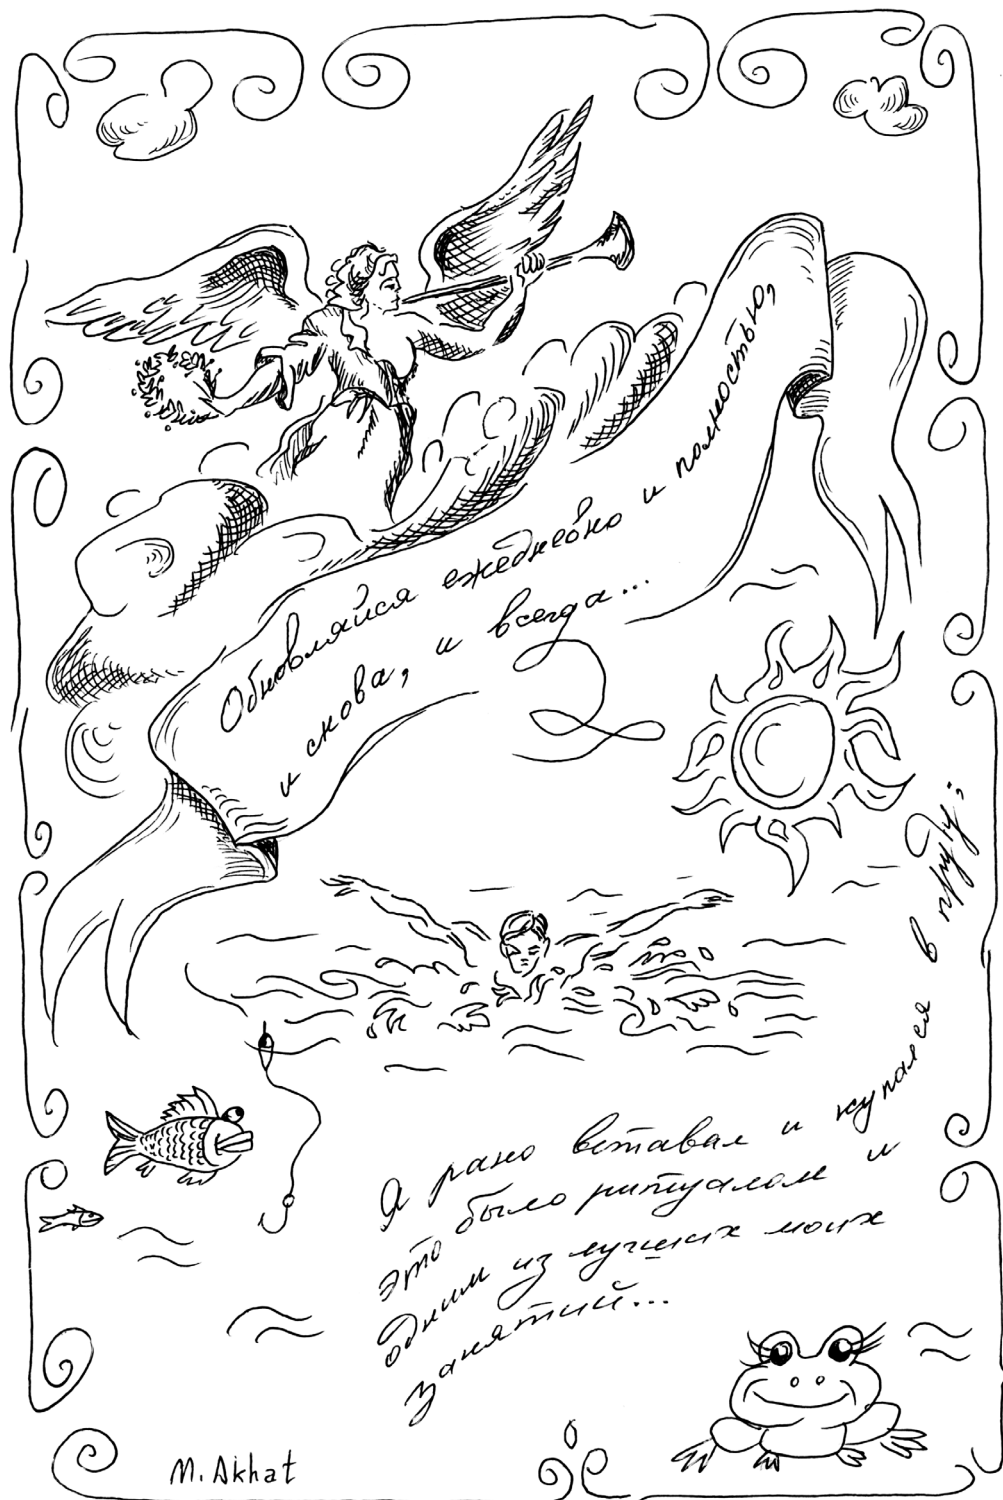 Обновляйся ежедневно и полностью,
и снова, и всегда...
Я рано вставал и купался в пруду;
это было ритуалом и
одним из лучших моих
занятий...
M. Akhat